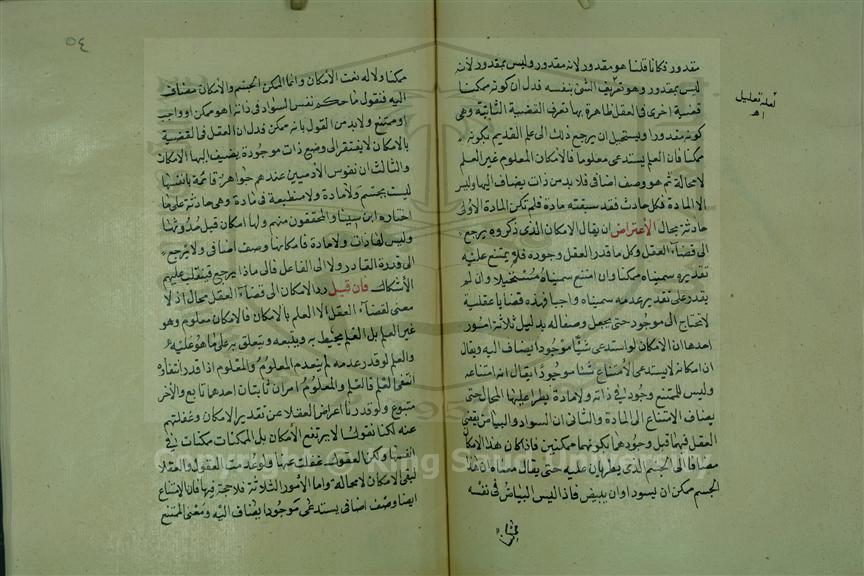 مقدور فكانا قلنا هو مقدور لانه مقدور وليس بمقدور لانه
ليس بمقدور وهو تعريف الشئ بنفسه فدل ان كونه ممكنا
قضية اخرى فى العقل ظاهرة بها تعرف القضية الثانية وهى
كونه مقدورا ويستحيل ان يرجع ذلك الى علم القديم بكونه
ممكنا فان العلم يستدعى معلوما فالامكان المعلوم غير العلم
لا محالة ثم هو وصف اضافى فلا بد من ذات يضاف اليها وليس
الا المادة فكل حادث فقد سبقته مادة فلم تكن المادة الاولى
حادثة بحال الاعتراض ان يقال الامكان الذى ذكروه يرجع
الى قضاء العقل وكل ما قدر العقل وجوده فلم يمتنع عليه
تقديره سميناه ممكنا وان امتنع سميناه مستحيلا وان لم
يقدر على تقدير عدمه سميناه واجبا فهذه قضايا عقلية
لا تحتاج الى موجود حتى يجعل وصفا له بدليل ثلاثة امور
احدها ان الامكان لو استدعى شيئا موجودا يضاف اليه ويقال
انه امكانه لاستدعى الامتناع شيئا موجودا يقال انه امتناعه
وليس للممتنع وجود فى ذاته ولا مادة يطرا عليها المحال حتى
يضاف الامتناع الى المادة والثانى ان السواد والبياض يقضى
العقل فيهما قبل وجودهما بكونهما ممكنين فاذا كان هذا الامكان
مضافا الى الجسم الذى يطريان عليه حتى يقال معناه ان هذا
الجسم ممكن ان يسود او ان يبيض فاذا ليس البياض فى نفسه
لعله تعليل
اهـ
٥٤
ممكنا ولا له نعت الامكان وانما الممكن الجسم والامكان مضاف
اليه فنقول ما حكم نفس السواد فى ذاته اهو ممكن او واجب
او ممتنع ولا بد من القول بانه ممكن فدل ان العقل فى القضية
بالامكان لا يفتقر الى وضع ذات موجودة يضيف اليها الامكان
والثالث ان نفوس الادميين عندهم جواهر قائمة بانفسها
ليست بجسم ولا مادة ولا منطبعة فى مادة وهى حادثة على ما
اختاره ابن سينا والمحققون منهم ولها امكان قبل حدوثها
وليس لها ذات ولا مادة فامكانها وصف اضافى ولا يرجع
الى قدرة القادر ولا الى الفاعل فالى ماذا يرجع فينقلب عليهم
الاشكال فان قيل رد الامكان الى قضاء العقل محال اذ لا
معنى لقضاء العقل الا العلم بالامكان فالامكان معلوم وهو
غير العلم بل العلم يحيط به ويتبعه ويتعلق به على ما هو عليه
والعلم لو قدر عدمه لم ينعدم المعلوم والمعلوم اذا قدر انتفاؤه
انتفى العلم فالعلم والمعلوم امران ثابتان احدهما تابع والاخر
متبوع ولو قدرنا اعراض العقلا عن تقدير الامكان وغفلتهم
عنه لكنا نقول لا يرتفع الامكان بل الممكنات ممكنات فى
انفسها ولكن العقول غفلت عنها ولو عدمت العقول والعقلا
لبقى الامكان لا محالة واما الامور الثلاثة فلا حجة فيها فان الامتناع
ايضا وصف اضافى يستدعى موجودا يضاف اليه ومعنى الممتنع
Copyright © King Saud University